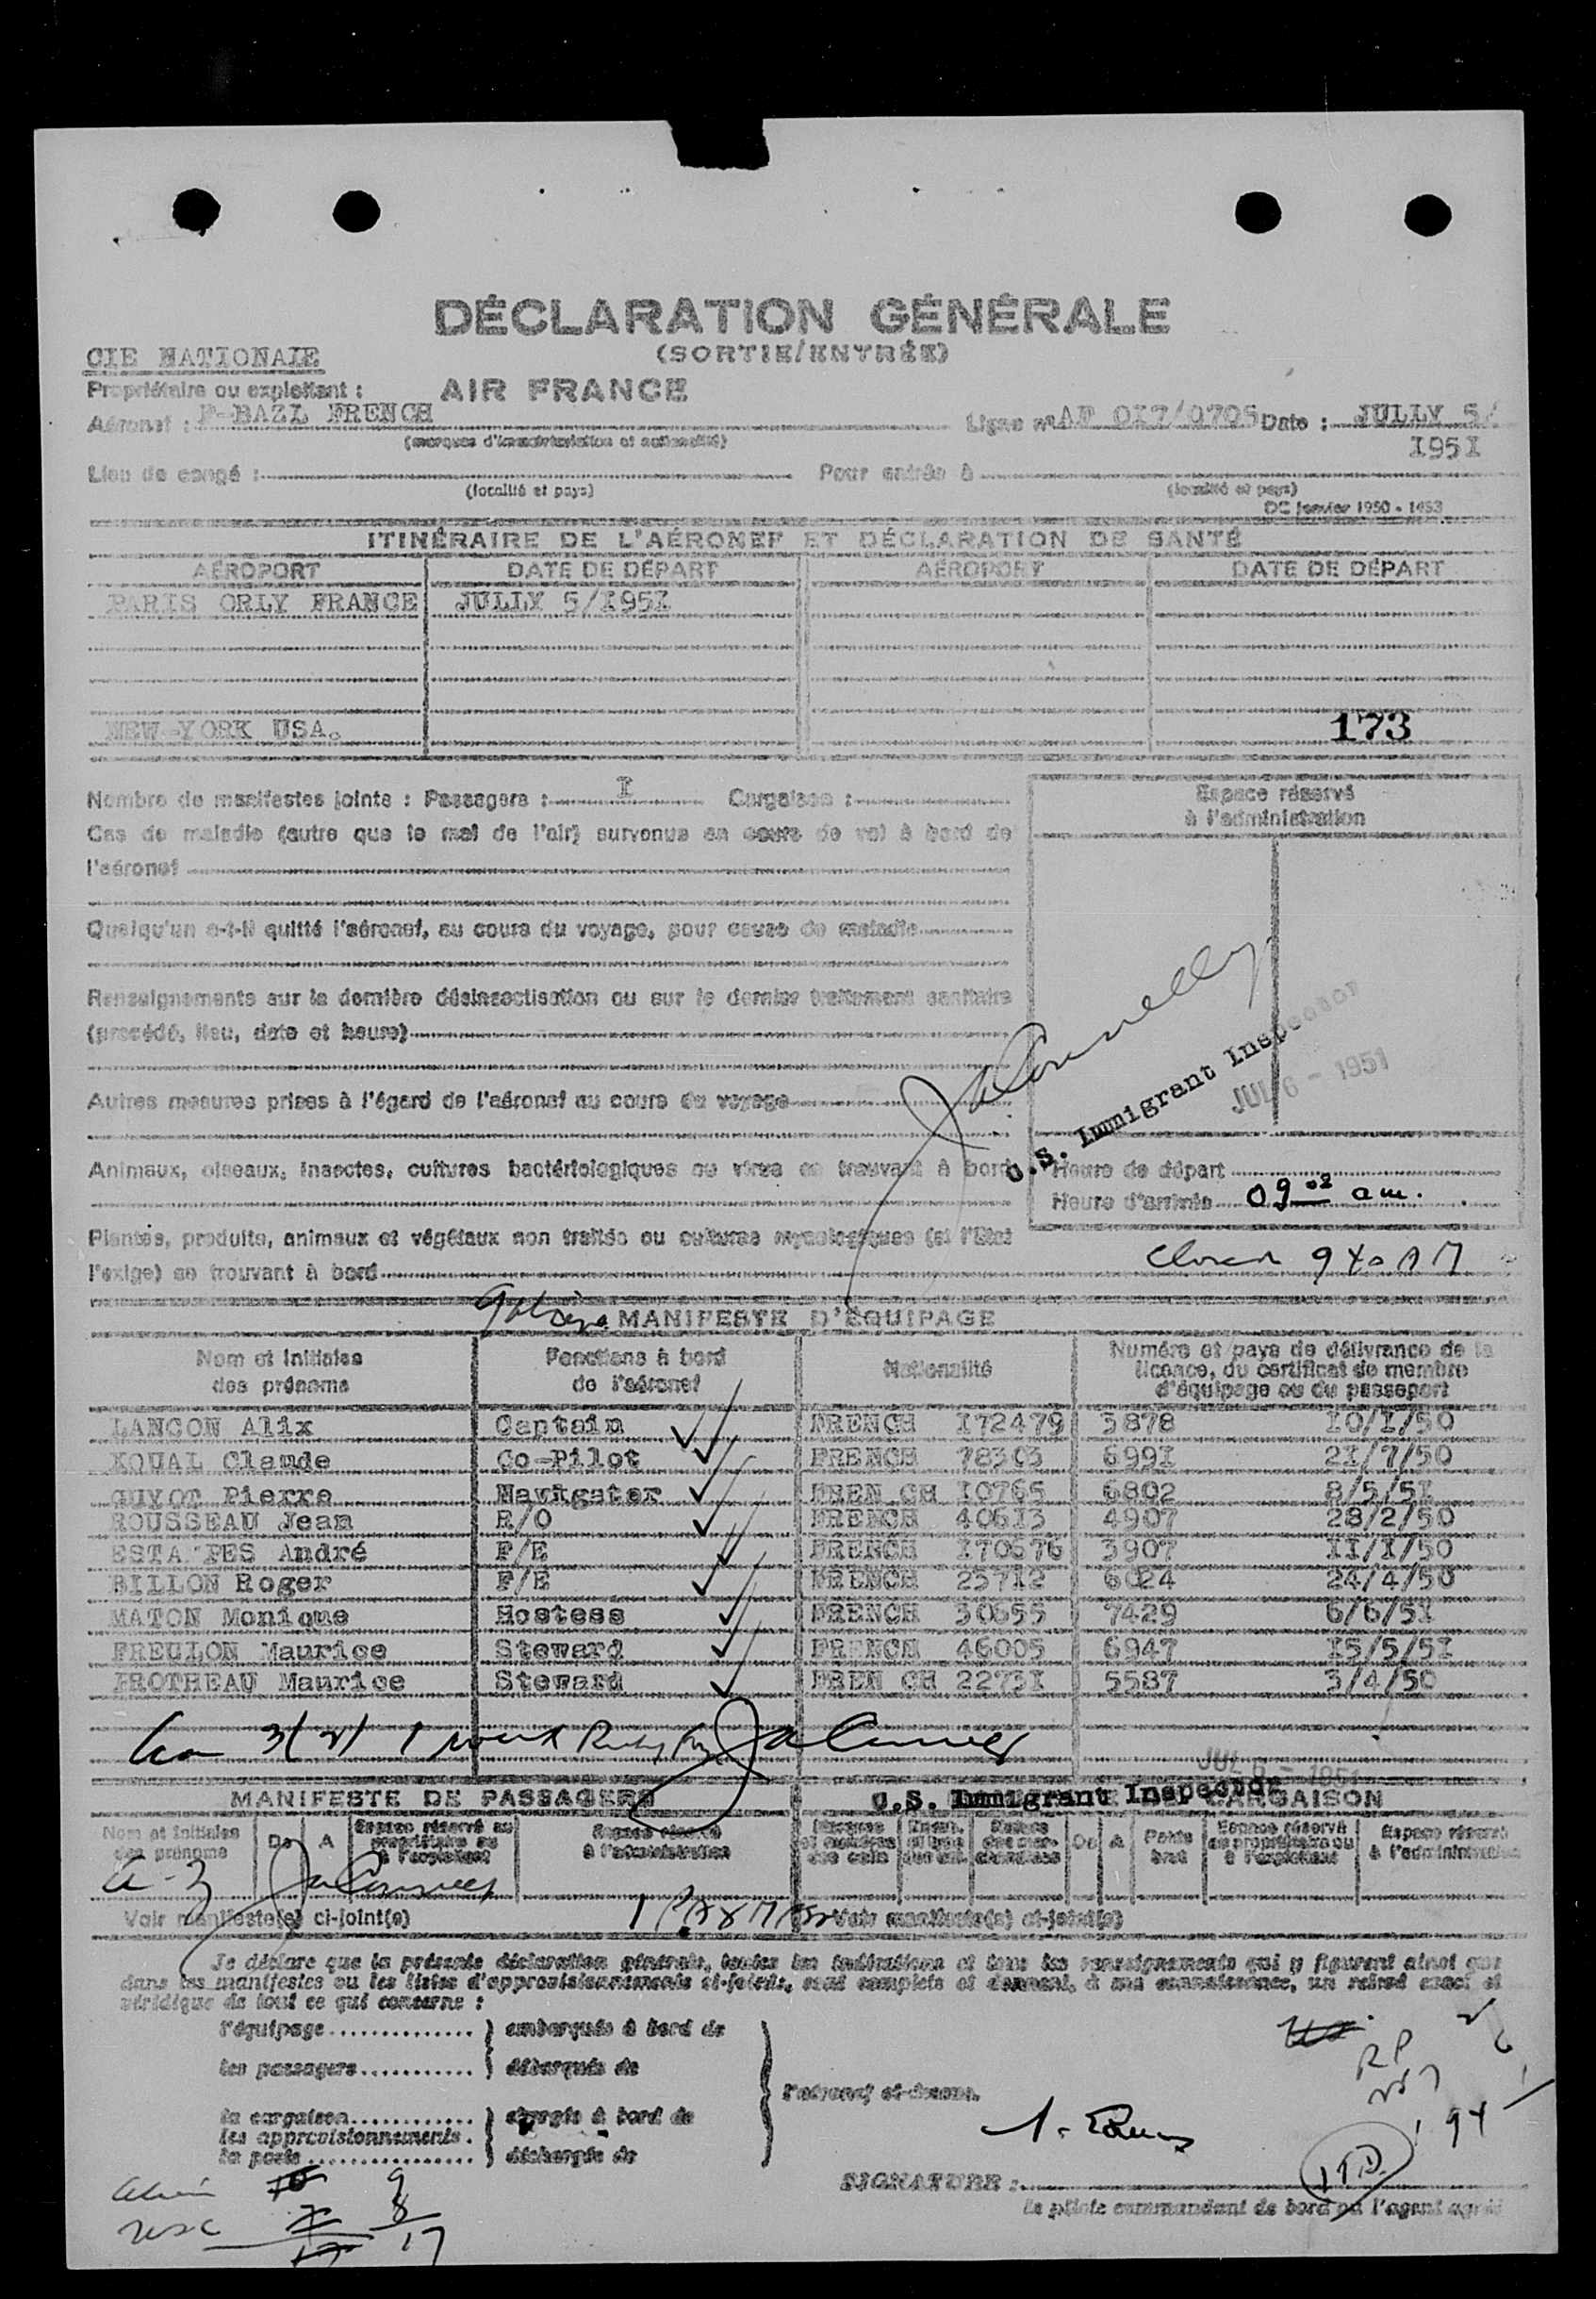 DÉCLARATION GÉNÉRALE
(SORTIE/ENTRÉE)
CIE NATIONALE
Propriétaire ou exploitant : AIR FRANCE
Aéronef : F-BAZL FRENCH Ligne n° AF 017/0705 Date : JULLY 5/
(marques d'immatriculation et nationalité) I95I
Lieu de congé : Pour entrée à
(localité et pays) (localité et pays)
DC janvier 1950 - 1453
ITINÉRAIRE DE L'AÉRONEF ET DÉCLARATION DE SANTÉ
AÉROPORT DATE DE DÉPART AÉROPORT DATE DE DÉPART
PARIS ORLY FRANCE JULLY 5/I95I
NEW-YORK USA. 173
Nombre de manifestes joints : Passagers : I Cargaison :
Espace réservé
à l'administration
Cas de maladie (autre que le mal de l'air) survenus en cours de vol à bord de
l'aéronef
Quelqu'un a-t-il quitté l'aéronef, au cours du voyage, pour cause de maladie
Renseignements sur la dernière désinsectisation ou sur le dernier traitement sanitaire
(procédé, lieu, date et heure)
U.S. Immigrant Inspector
JUL 6 - 1951
Autres mesures prises à l'égard de l'aéronef au cours du voyage
Animaux, oiseaux, insectes, cultures bactériologiques ou virus se trouvant à bord
Heure de départ
Heure d'arrivée 09 02 am.
Plantes, produits, animaux et végétaux non traités ou cultures mycologiques (si l'Etat
l'exige) se trouvant à bord
940 AM
MANIFESTE D'ÉQUIPAGE
Nom et initiales des prénoms Fonctions à bord de l'aéronef Nationalité Numéro et pays de délivrance de la licence, du certificat de membre d'équipage ou du passeport
LANCON Alix Captain FRENCH I72479 3878 I0/I/50
KOUAL Claude Co-Pilot FRENCH 78303 699I 2I/7/50
GUYOT Pierre Navigater FREN CH I0765 6802 8/5/5I
ROUSSEAU Jean R/O FRENCH 406I3 4907 28/2/50
ESTA FES André F/E FRENCH I70676 3907 II/I/50
BILLON Roger F/E FRENCH 257I2 6024 24/4/50
MATON Monique Hostess FRENCH 30655 7429 6/6/5I
FREULON Maurice Steward FRENCH 46005 6947 I5/5/5I
PROTHEAU Maurice Steward FREN CH 2273I 5587 3/4/50
JUL 6 - 1951
U.S. Immigrant Inspector
MANIFESTE DE PASSAGERS CARGAISON
Nom et initiales des prénoms De A Espace réservé au propriétaire ou à l'exploitant Espace réservé à l'administration
De A Poids brut Espace réservé au propriétaire ou à l'exploitant Espace réservé à l'administration
Voir manifeste(s) ci-joint(s) Voir manifeste(s) ci-joint(s)
Je déclare que la présente déclaration générale, toutes les indications et tous les renseignements qui y figurent ainsi que
dans les manifestes ou les listes d'approvisionnements ci-joints, sont complets et donnent, à ma connaissance, un relevé exact et
véridique de tout ce qui concerne :
l'équipage embarqués à bord de
les passagers débarqués de
l'aéronef ci-dessus.
la cargaison chargés à bord de
les approvisionnements
la poste déchargés de
SIGNATURE :
Le pilote commandant de bord ou l'agent agréé
9
8
17